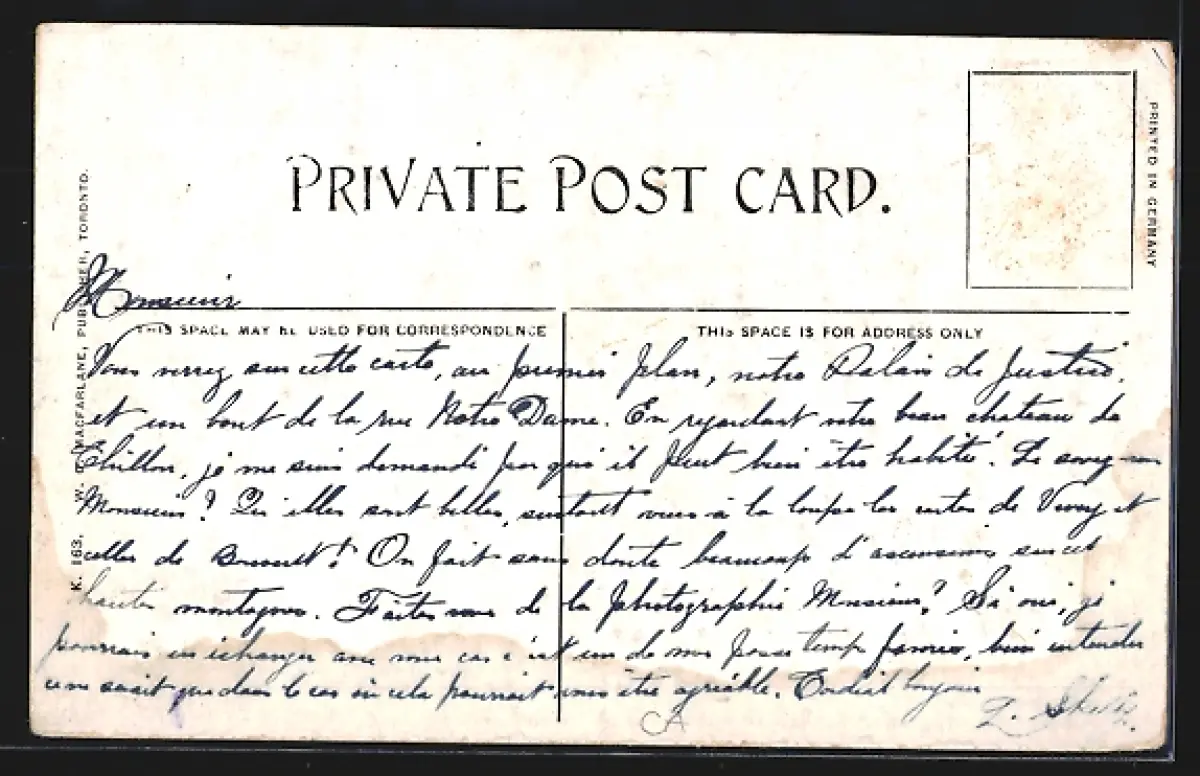 PRIVATE POST CARD.
PRINTED IN GERMANY
K. 163. W. G. MACFARLANE, PUBLISHER, TORONTO.
Monsieur
THIS SPACE MAY BE USED FOR CORRESPONDENCE
THIS SPACE IS FOR ADDRESS ONLY
Vous verrez sur cette carte, au premier plan, notre Palais de Justice,
et un bout de la rue Notre Dame. En regardant votre beau chateau de
Chillon, je me suis demandé par qui il peut bien être habité. Le savez-vous
Monsieur? Qu'elles sont belles, surtout vues à la loupe les cartes de Vevey et
celles de ! On fait sans doute beaucoup d'ascensions sur ces
hautes montagnes. Faites vous de la photographie Monsieur? Si oui, je
pourrais en échanger avec vous car c'est un de mes passe temps favoris, bien entendu
ce ne serait que dans le cas où cela pourrait vous être agréable. Cordial bonjour
CA